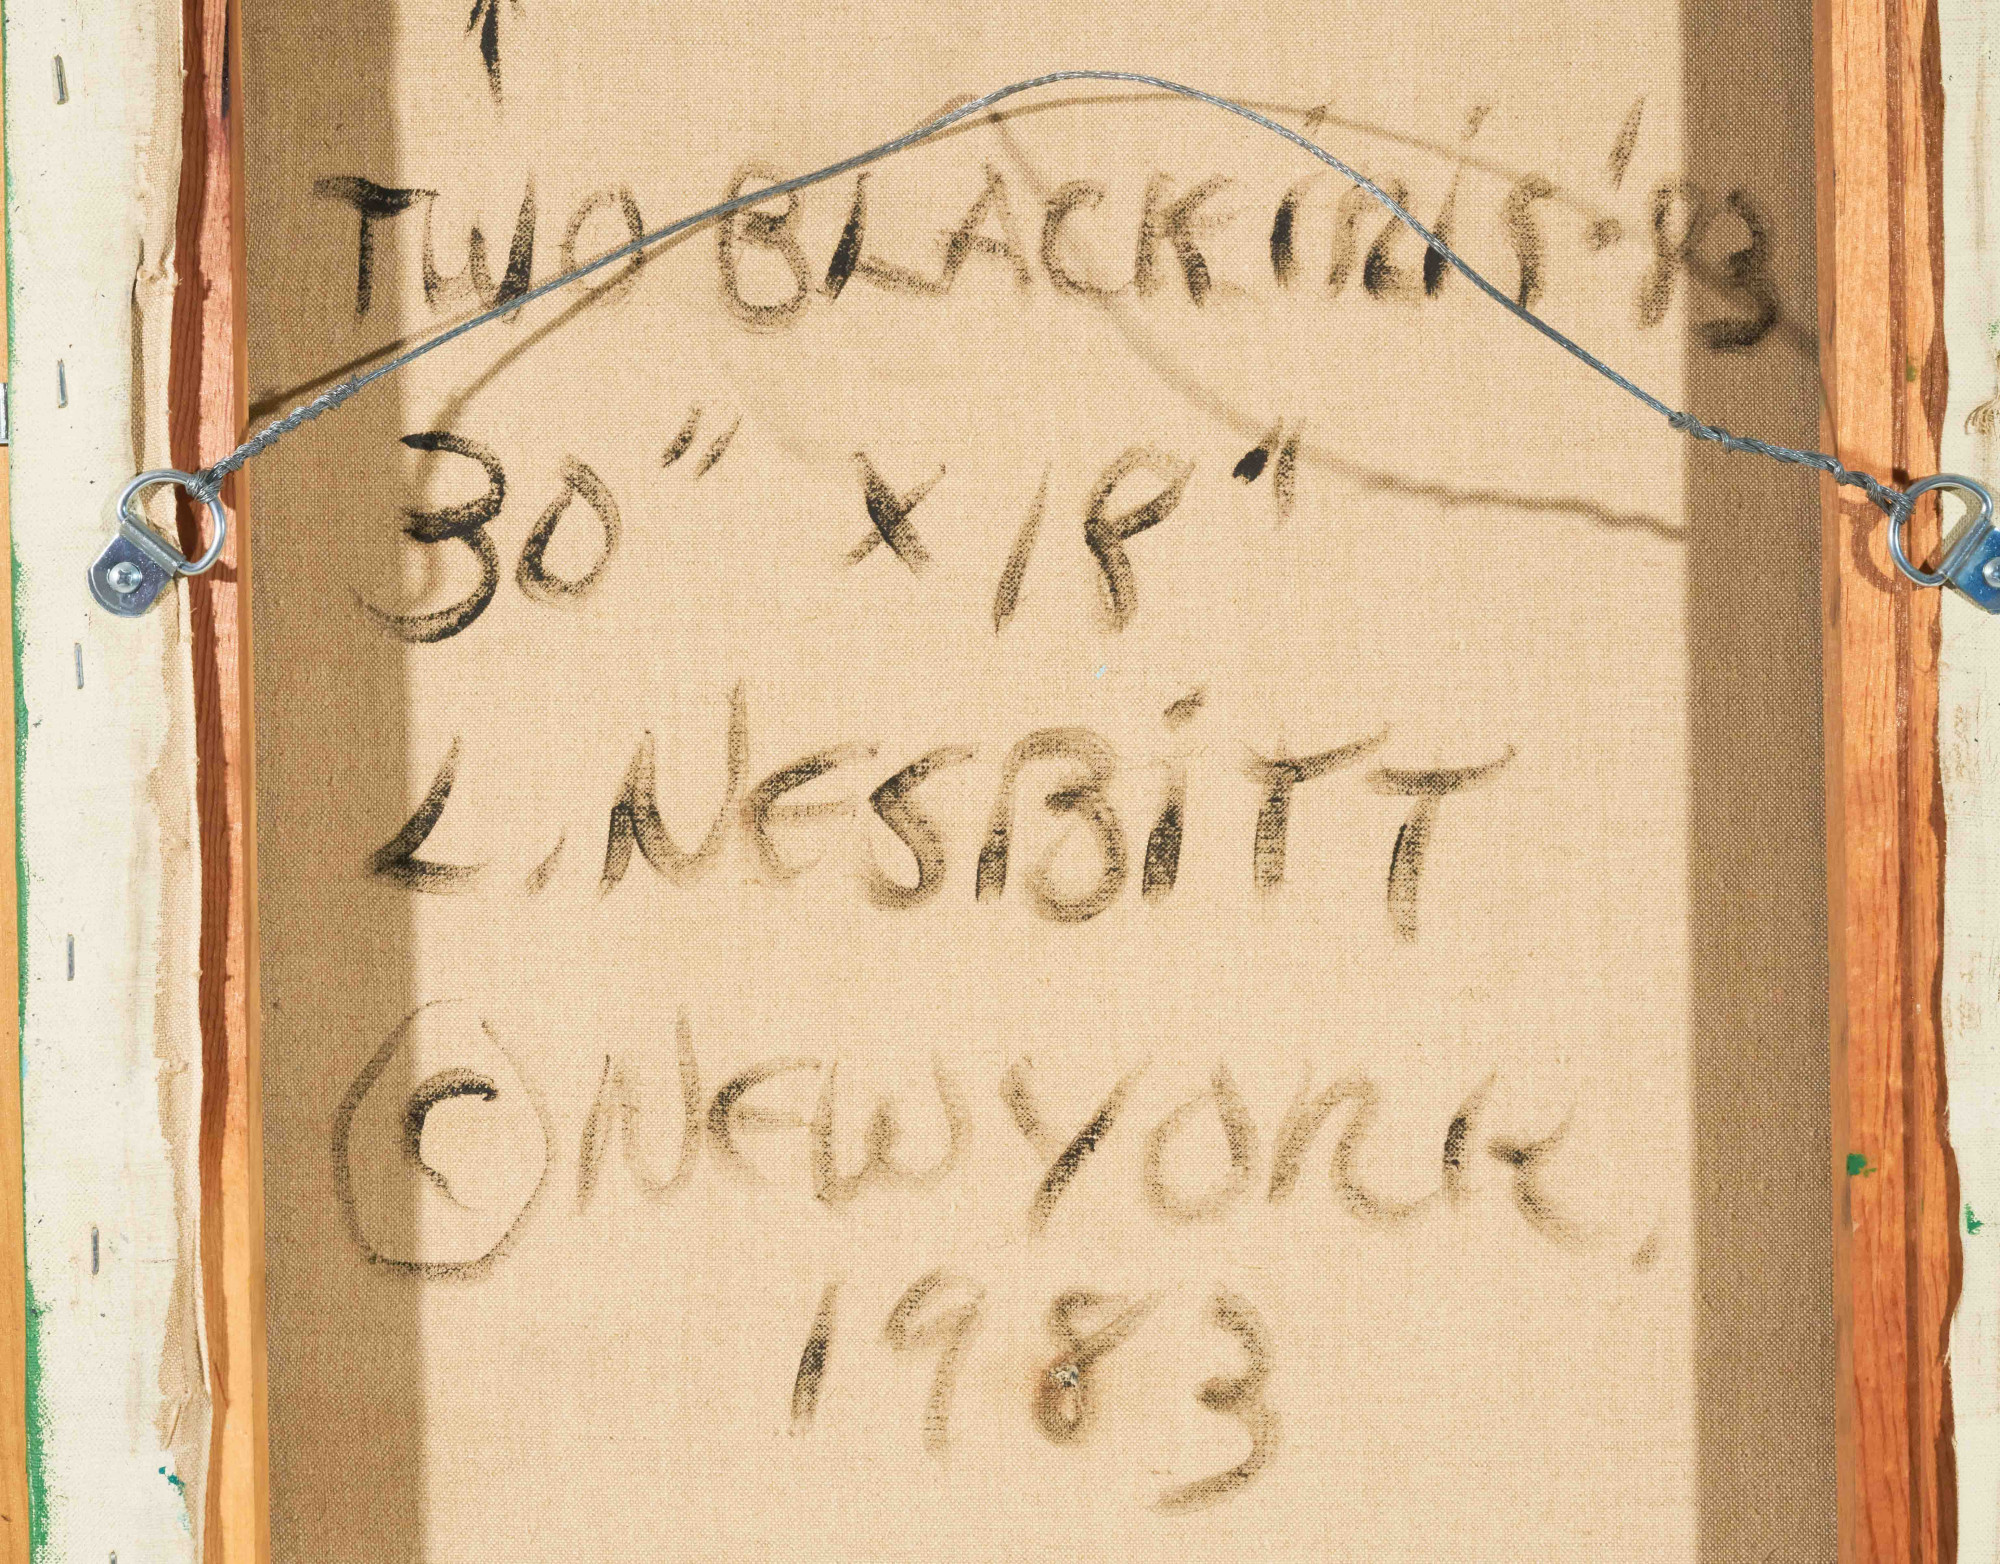 TWO BLACK IRIS - '83
30" x 18"
L. NESBITT
© NEW YORK,
1983